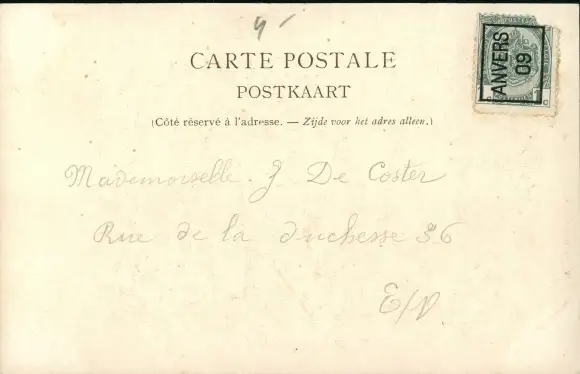 4
CARTE POSTALE
POSTKAART
(Côté réservé à l'adresse. — Zijde voor het adres alleen.)
ANVERS
09
1 C
Mademoiselle. J De Coster
Rue de la duchesse 36
E/V